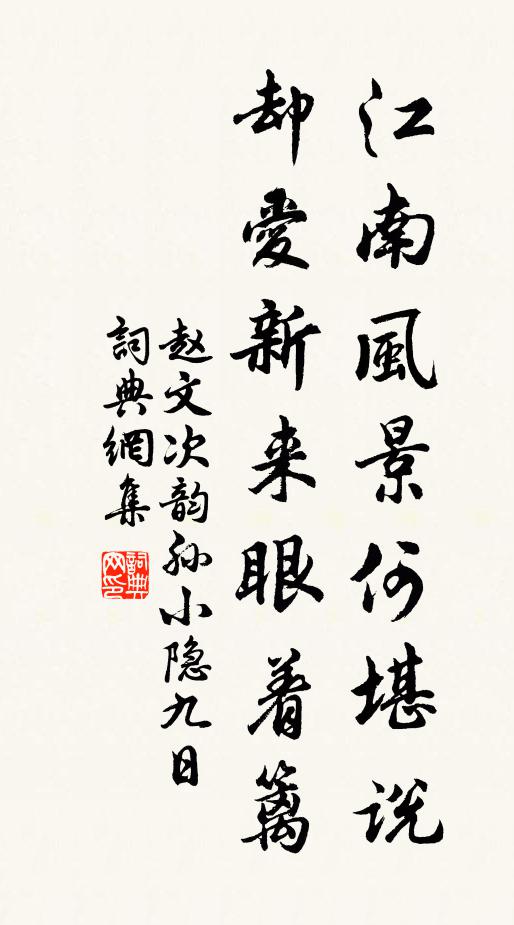 江南風景何堪說
却愛新来眼着籬
赵文次韵孙小隐九日
詞典網集
詞典网印